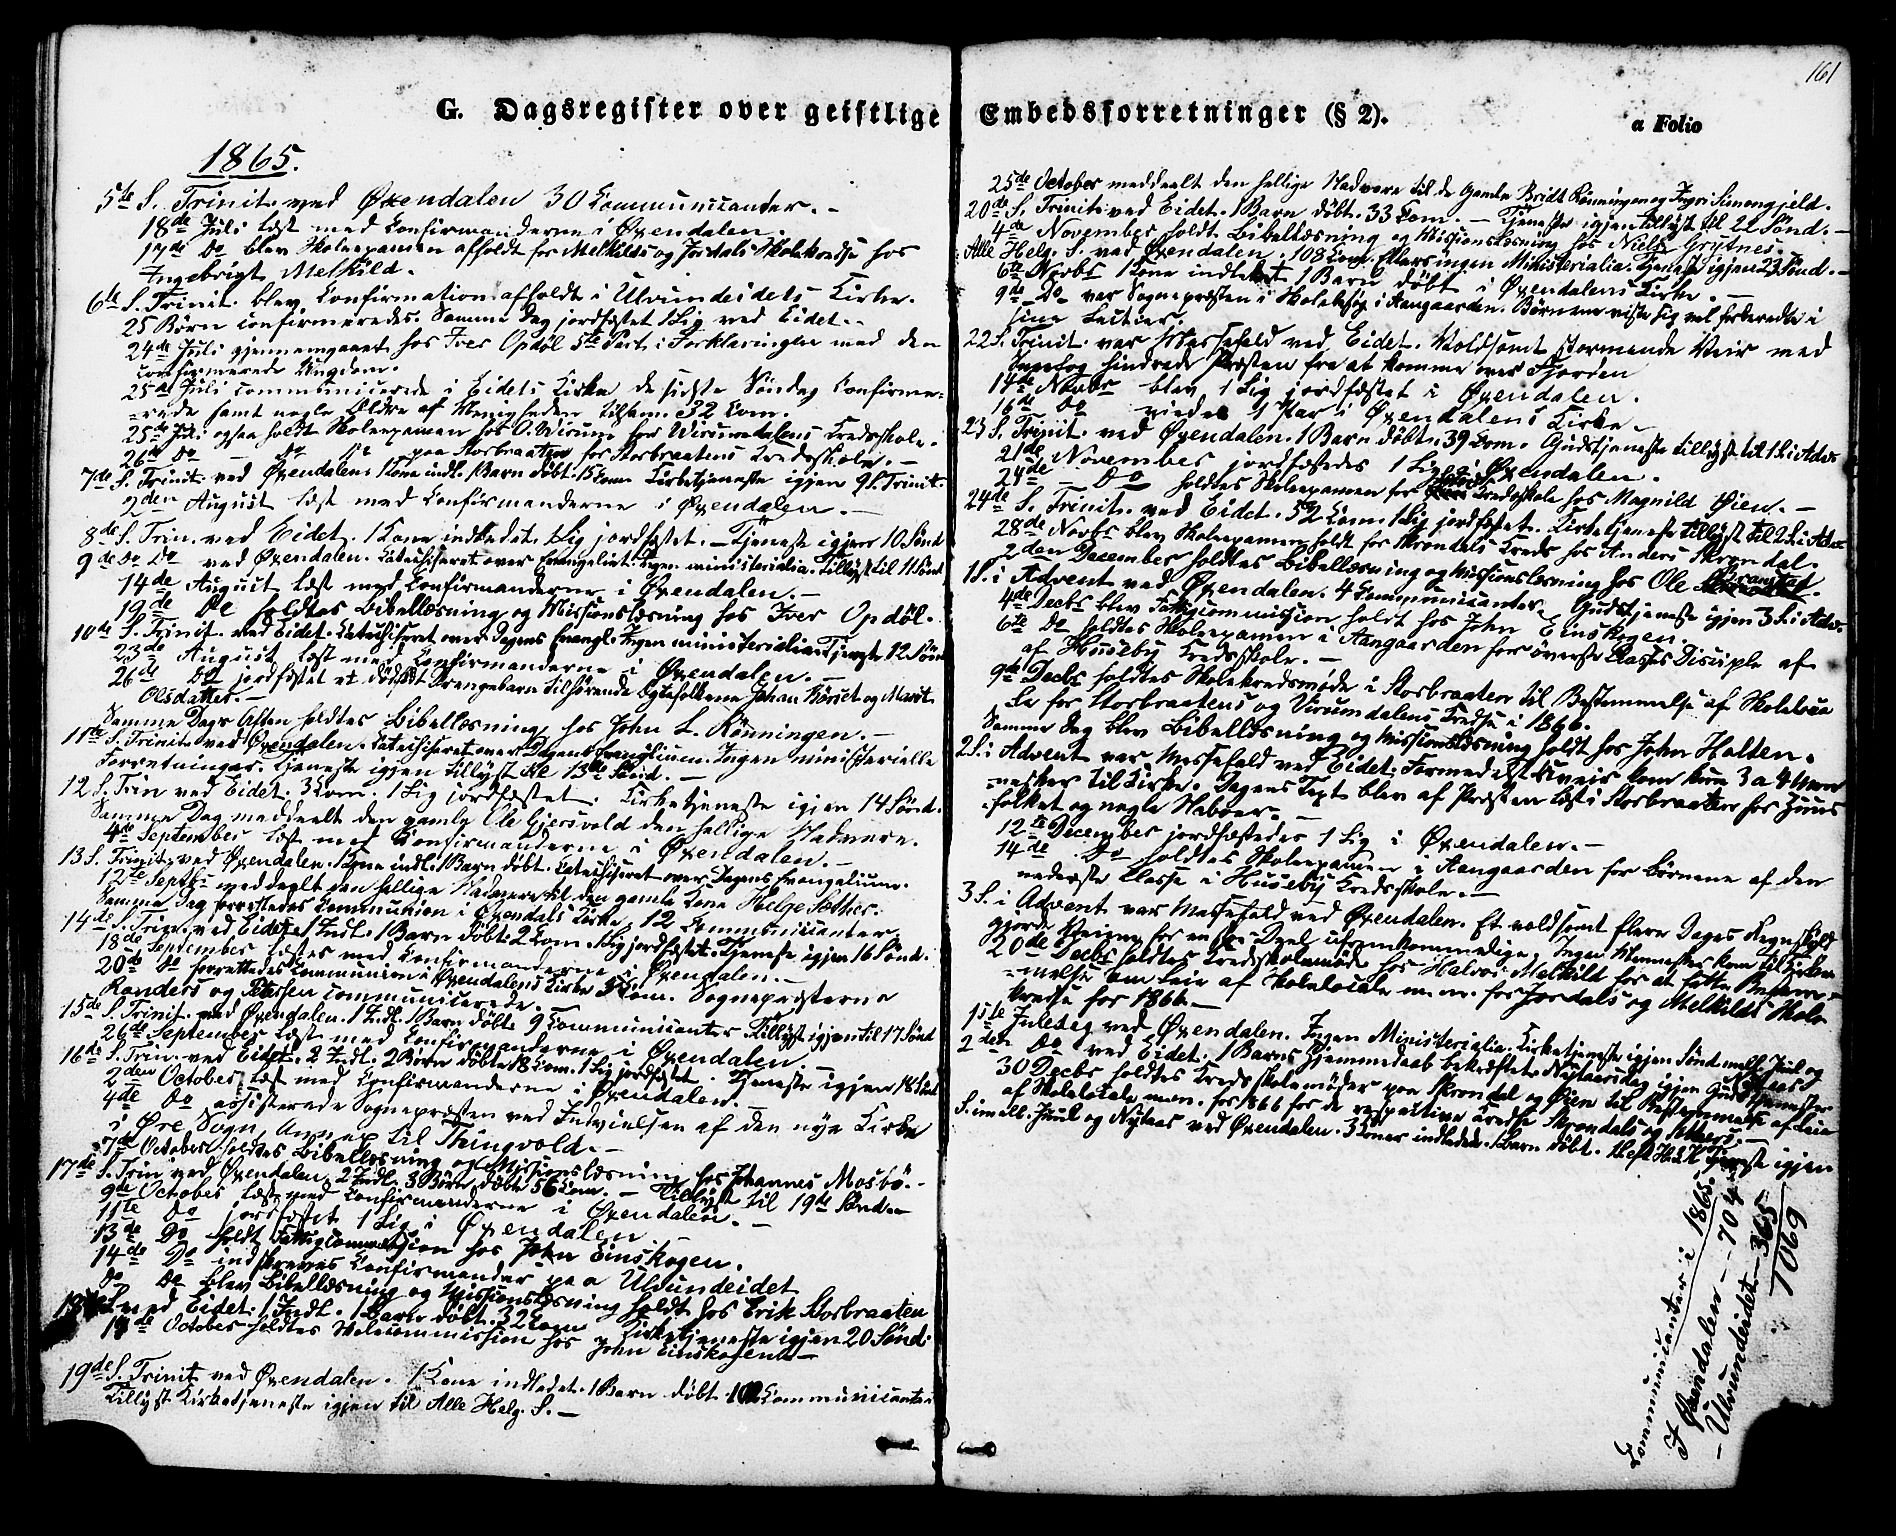 161
G. Dagsregister over geistlige Embedsforretninger (§ 2).
a Folio
1865.
5te S. Trinit. ved Øxendalen 30 Communicanter. -
18de Juli læst med Confirmanderne i Øxendalen.
17de Do blev Skoleexamen afholdt for Melkilds og Jordals Skolekreds hos
Ingebrigt Melkild.
6te S. Trinit. blev Confirmation afholdt i Ulvundeidets Kirke.
25 Børn confirmeredes. Samme Dag jordfæstet 1 Lig ved Eidet. -
24de Juli gjennemgaaet hos Iver Opdøl 5te Part i Forklaringen med den
confirmerede Ungdom.
25de Juli communicerede i Eidets Kirke de sidste Søndag Confirme-
rede samt nogle Ældre af Menigheden tilsam. 32 Com.
25de Juli ogsaa holdt Skoleexamen hos O. Wirum for Wirumdalens Kredsskole.
26de Do - Do paa Storbraaten for Storbraatens Kredsskole. -
7de S. Trinit. ved Øxendalen 1 Kone indl. 1 Barn døbt. 15 Com. Kirketjeneste igjen 9 S. Trinit.
2den August læst med Confirmanderne i Øxendalen. -
8de S. Trin. ved Eidet. 1 Kone indledet. 1 Lig jordfæstet. - Tjeneste igjen 10 Sønd
9de Do Do ved Øxendalen. Catechiseret over Evangeliet. Ingen ministerialia. Tillyst til 11 Sønd
14de August læst med Confirmanderne i Øxendalen. -
19de Do holdtes Bibellæsning og Missionslæsning hos Iver Opdøl.
10de S. Trinit. ved Eidet. Catechiseret over Dagens Evangl. Ingen ministerialia. Tjeneste 12 Sønd
23de August læst med Confirmanderne i Øxendalen. -
26de Do jordfæstet et dødfødt Drengebarn tilhørende Egtefolkene Johan Børset og Marit
Olsdatter. -
Samme Dags Aften holdtes Bibellæsning hos John L. Rønningen. -
11te S. Trinit. ved Øxendalen. Catechiseret over Dagens Evangelium. Ingen ministerielle
Forretninger. Tjeneste igjen tillyst til 13de Trinid. -
12 S. Trin ved Eidet. 3 Com. 1 Lig jordfæstet. Kirketjeneste igjen 14 Sønd.
Samme Dag meddeelt den gamle Ole Gjersvold den hellige Nadvere.
4de September læst med Confirmanderne i Øxendalen. -
13 S. Trinit. ved Øxendalen. 1 Kone indl. 1 Barn døbt. Catechiseret over Dagens Evangelium.
12te Septbr meddeelt den hellige Nadvere til den gamle Kone Helge Sæther.
Samme Dag forrettedes Communion i Øxendals Kirke. 12 Communicanter.
14de S. Trin. ved Eidet. 1 Indl. 1 Barn døbt. 2 Com. 1 Lig jordfæstet. Tjeneste igjen 16 Sønd.
18de September læstes med Confirmanderne i Øxendalen. -
20de Do forrettedes Communion i Øxendalens Kirke Com. Sognepræsterne
Randers og Petersen communicerede.
15de S. Trinit. ved Øxendalen. 1 Indl. 1 Barn døbt. 9 Communicanter. Tillyst igjen til 17 Sønd
26de September læst med Confirmanderne i Øxendalen
16de S. Trin. ved Eidet. 2 Indl. 2 Børn døbte. 18 Com. 1 Lig jordfæstet. Tjeneste igjen 18 Sønd
2den October læst med Confirmanderne i Øxendalen. -
4de Do assisterede Sognepræsten ved Indvielsen af den nye Kirke
i Øre Sogn, Annex til Thingvold. -
7de October holdtes Bibellæsning og Missionslæsning hos Johannes Mosbø. -
17de S. Trin ved Øxendalen. 2 Indl. 3 Børn døbte 56 Com. - Tillyst til 19de Sønd.
9de October læst med Confirmanderne i Øxendalen. -
11te Do jordfæstet 1 Lig i Øxendalen
13de Do holdt Fattigcommission hos John Einskogen.
14de Do indskreves Confirmander paa Ulvundeidet
Do Do blev Bibellæsning og Missionslæsning holdt hos Erik Storbraaten
18de S. ved Eidet. 1 Indl. 1 Barn døbt. 32 Com. Kirketjeneste igjen 20 Sønd.
October holdtes Skolecommission hos John Einskogen. -
19de S. Trinit ved Øxendalen. 1 Kone indledet. 1 Barn døbt. 102 Communicanter
Tillyst Kirketjeneste igjen til Alle Helg. S. -
25de October meddeelt den hellige Nadvere til de Gamle Bridt Rønningen og Ingri Simengjeld.
20de S. Trinit. ved Eidet. 1 Barn døbt. 33 Com. - Tjeneste igjen tillyst til 22 Sønd. -
4de November holdt Bibellæsning og Missionslæsning hos Niels Grytnes.
Alle Helg. S. ved Øxendalen. 108 Com. Ellers ingen Ministerialia. Tjeneste igjen 23 Sønd. -
6te Novbr 1 Kone indledet 1 Barn døbt i Øxendalens Kirke. -
9de Do var Sognepræsten i Skolebesøg i Aangaarden. Børnene viste sig vel forberedte i
sine Lectier.
22 S. Trinit. var Messefald ved Eidet. Voldsomt stormende Veir med
Snefog hindrede Præsten fra at komme over Fjorden
14de Novbr blev 1 Lig jordfæstet i Øxendalen.
16de Do viedes 1 Par i Øxendalens Kirke.
23 S. Trinit. ved Øxendalen. 1 Barn døbt. 39 Com. Gudstjeneste tillyst til 1 S. i Adv.
21de November jordfæstedes 1 Lig i Øxendalen.
24de - Do holdtes Skoleexamen for Kredsskole hos Magnild Øien. -
24de S. Trinit. ved Eidet. 52 Com. 1 Lig jordfæstet. Kirketjeneste tillyst til 2 S. i Adv.
28de Novbr blev Skoleexamen holdt for Skrondals Kreds hos Anders Skrondal.
2den December holdtes Bibellæsning og Missionslæsning hos Ole
1 S. i Advent ved Øxendalen. 4 Communicanter. Gudstjeneste igjen 3 S. i Adv.
4de Decbr blev Fattigcommission holdt hos John Einskogen.
6te Do holdtes Skoleexamen i Aangaarden for øverste Classes Disciple af
af Huseby Kredsskole. -
9de Decbr holdtes Skolekredsmøde i Storbraaten til Bestemmelse af Skoleloca
le for Storbraatens og Virumdalens Kredse i 1866.
Samme Dag blev Bibellæsning og Missionslæsning holdt hos John Holten.
2 S. i Advent var Messefald ved Eidet. Formedelst Uveir kom kun 3 a 4 Men
nesker til Kirke. Dagens Text blev af Præsten læst i Storbraaten for Huus
folket og nogle Naboer. -
12te December jordfæstedes 1 Lig i Øxendalen. -
14de Do holdtes Skoleexamen i Aangaarden for Børnene af den
nederste Classe i Huseby Kredsskole. -
3 S. i Advent var Messefald ved Øxendalen. Et voldsomt flere Dages Regnskyll
gjorde Veiene for en Deel ufremkommelige. Ingen Mennesker kom til Kirken
20de Decbr holdtes Kredsskolemøde hos Halvor Melkild for at fatte Bestem-
melse om Leie af Skolelocale m. m. for Jordals og Melkilds Skole
kredse for 1866. -
1ste Juledag ved Øxendalen. Ingen Ministerialia. Kirketjeneste igjen Sønd. mell. Juul og
Nytaar
2den Do ved Eidet. 1 Barns Hjemmedaab bekræftet. Nytaarsdag igjen Gudstjeneste
30 Decbr holdtes Kredsskolemøder paa Skrondal og Øien til Bestemmelse af Leie
af Skolelocale m.m. for 1866 for de respective Kredse Skrondals og
S. imell. Juul og Nytaar ved Øxendalen. 3 Koner indledede. 1 Barn døbt. Tjeneste igjen
Communicanter i 1865.
I Øxendalen - - 704
- Ulvundeidet - 365
1069